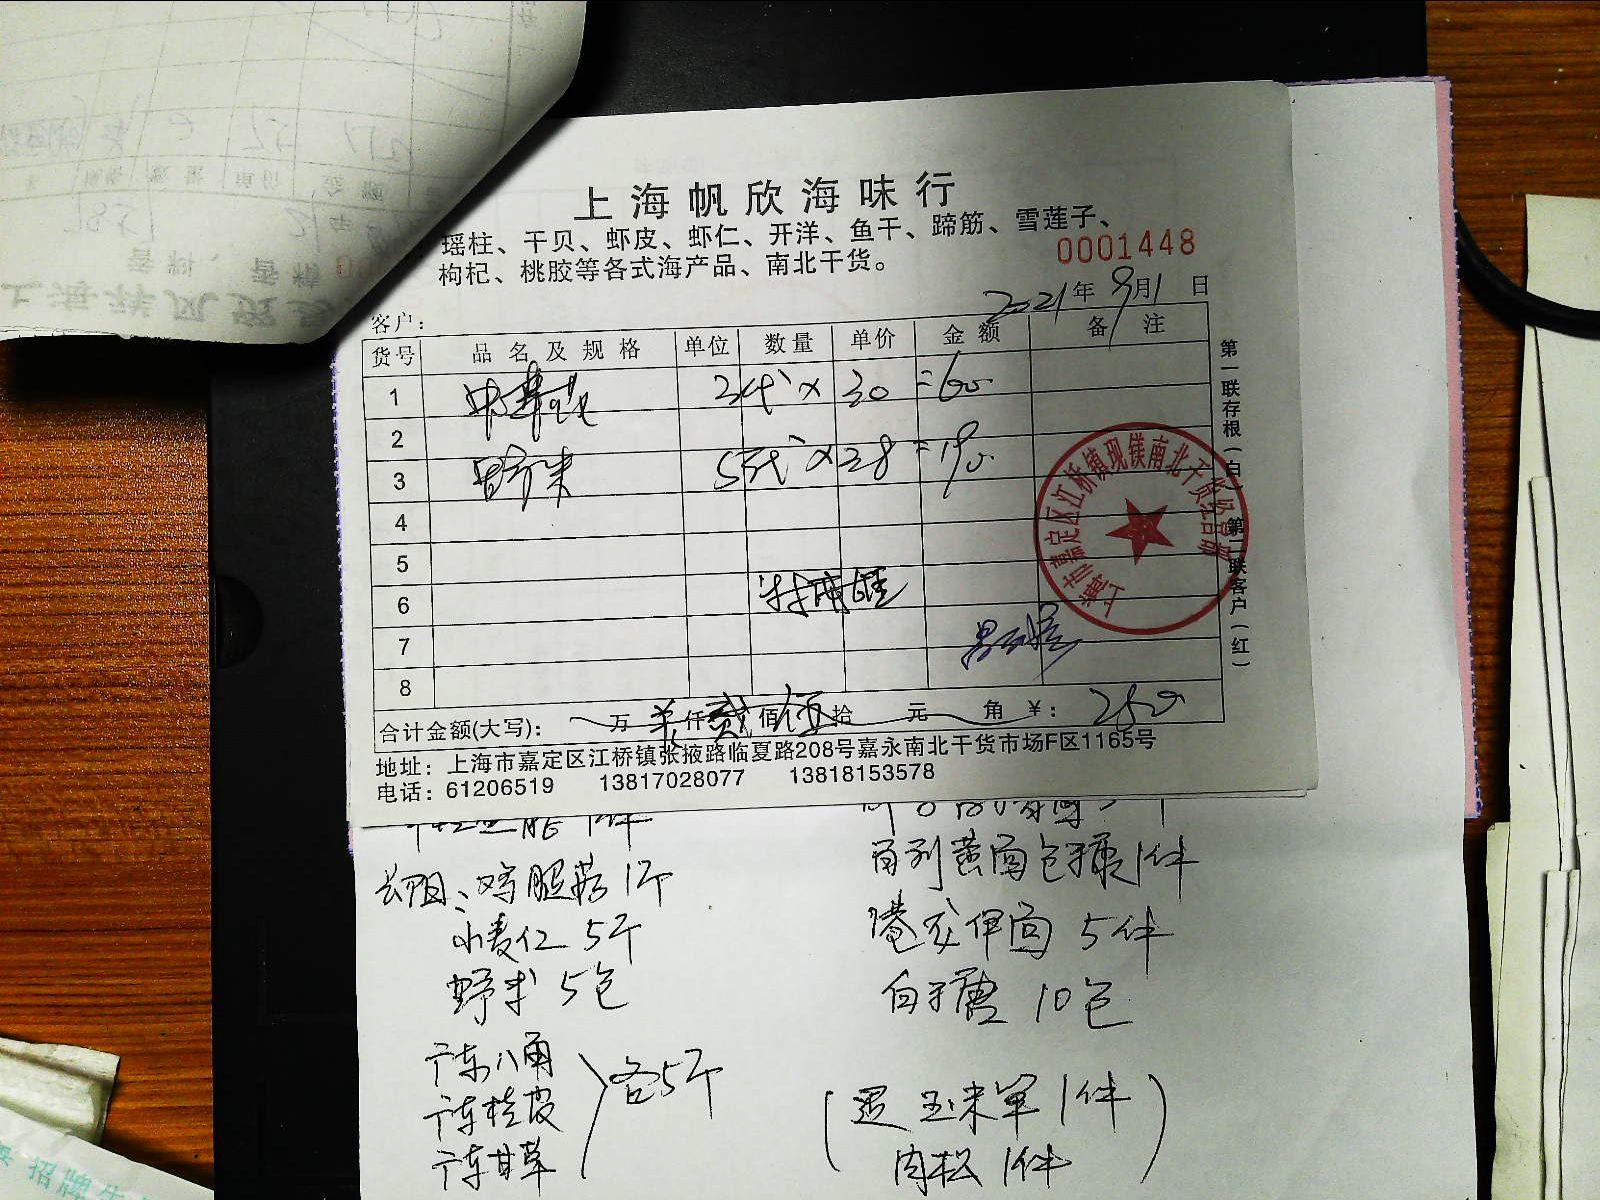 上海帆欣海味行
瑶柱、干贝、虾皮、虾仁、开洋、鱼干、蹄筋、雪莲子、
枸杞、桃胶等各式海产品、南北干货。
0001448
2021年9月1日
客户：
货号 品名及规格 单位 数量 单价 金额 备注
1 2代×30=60
2
3 野米 5代×38=190
4
5
6
7
8
合计金额(大写)： 万 仟贰佰伍拾 元 角 ¥: 250
地址：上海市嘉定区江桥镇张掖路临夏路208号嘉永南北干货市场F区1165号
电话：61206519 13817028077 13818153578
第一联存根(白) 第二联客户(红)
上海市嘉定区江桥镇现镁南北干货经营部
鸡腿菇 1斤
小麦仁 5斤
野米 5包
广东八角
广东桂皮
广东甘草
各5斤
1件
伊面 5件
白砂糖 10包
(退 玉米笋 1件
肉松 1件)
招牌